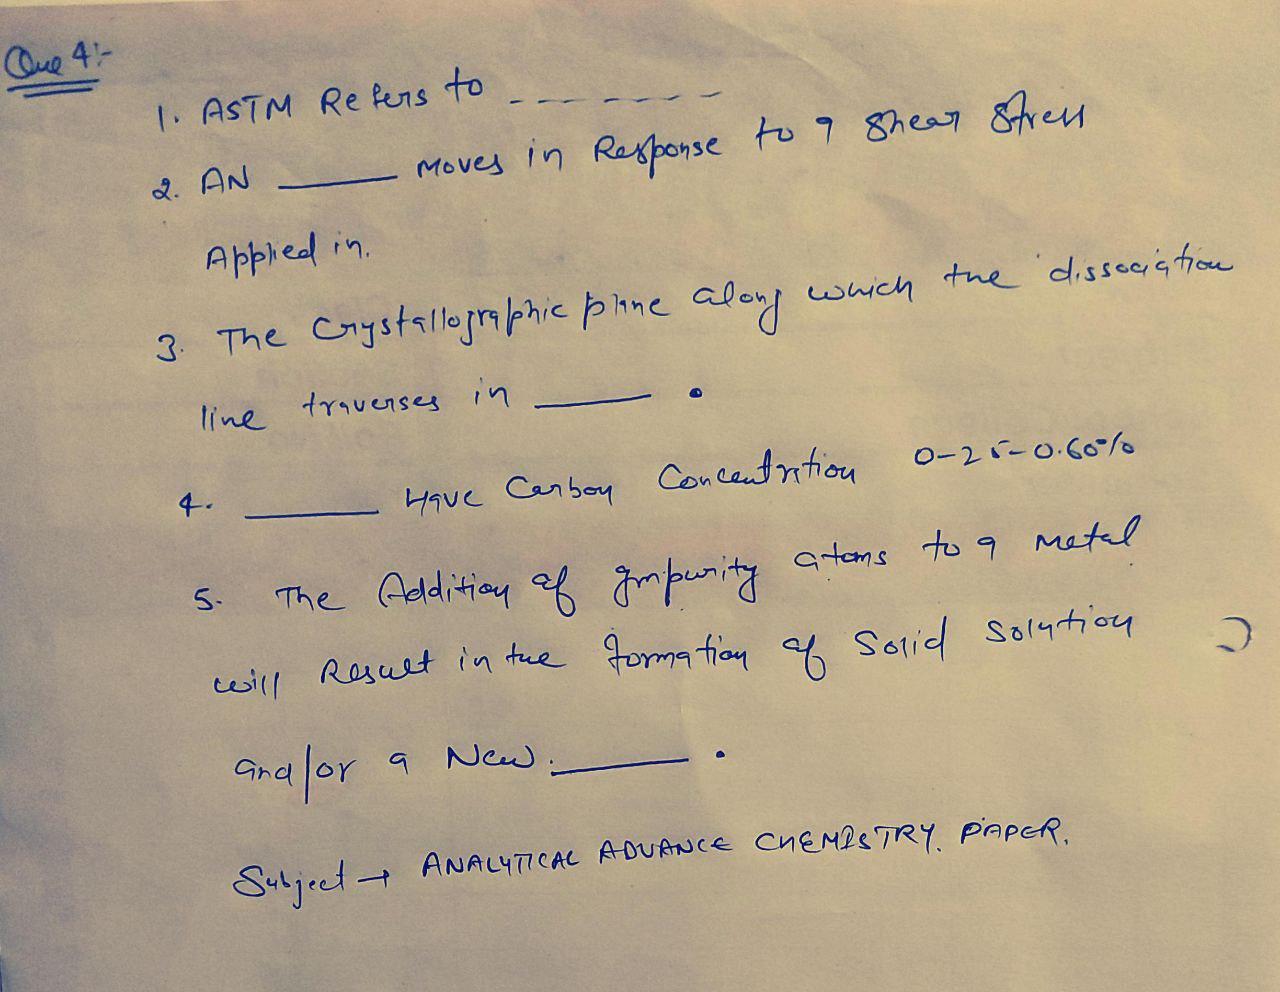 Que 4:-
1. ASTM Refers to -------
2. AN ______ Moves in Response to a Shear Stress
Applied in.
3. The Crystallographic plane along which the dissociation
line traverses in ______ .
4. ______ Have Carbon Concentration 0-25-0.60%
5. The Addition of Impurity atoms to a metal
will Result in the formation of Solid Solution
and/or a New. ______ .
Subject → ANALYTICAL ADVANCE CHEMISTRY. PAPER.